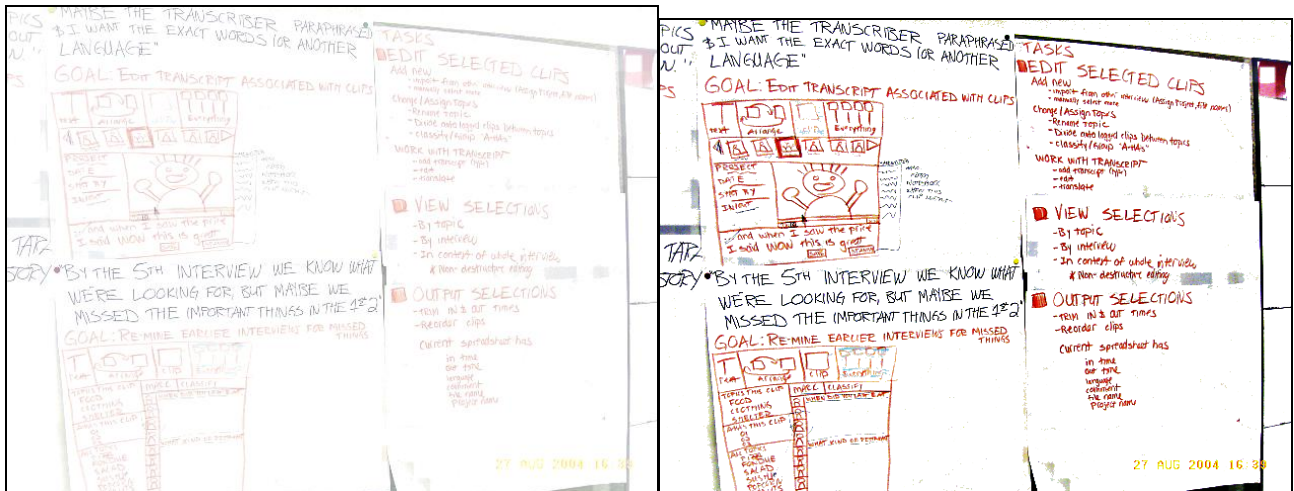 PICS
OUT
N."
"MAYBE THE TRANSCRIBER PARAPHRASED
& I WANT THE EXACT WORDS (OR ANOTHER
LANGUAGE"
GOAL: EDIT TRANSCRIPT ASSOCIATED WITH CLIPS
TEXT
Arrange
Everything
PROJECT
DATE
SHOT BY
IN/OUT
and when I saw the price
I said WOW this is great
TAPE
STORY
"BY THE 5TH INTERVIEW WE KNOW WHAT
WE'RE LOOKING FOR, BUT MAYBE WE
MISSED THE IMPORTANT THINGS IN THE 1ST 2"
GOAL: RE-MINE EARLIER INTERVIEWS FOR MISSED
THINGS
Text
Arrange
Clip
Everything
TOPICS THIS CLIP
FOOD
CLOTHING
SHELTER
AHAS THIS CLIP
01
02
03
ALL TOPICS
PIZZA
FONDUE
SALAD
SUSHI
POPCORN
MARK
CLASSIFY
WHEN DID YOU LAST EAT
WHAT KIND OF
TASKS
EDIT SELECTED CLIPS
Add new
- import from other interview (Assign Project, file names)
- manually select more
Change/Assign Topics
- Rename topic
- Divide auto logged clips between topics
- classify/group "A-HAs"
WORK WITH TRANSCRIPT
- add transcript (type)
- edit
- translate
VIEW SELECTIONS
- By topic
- By interview
- In context of whole interview
& Non-destructive editing
OUTPUT SELECTIONS
- TRIM IN & OUT times
- Reorder clips
Current spreadsheet has
in time
out time
language
comment
file name
Project name
27 AUG 2004 16:39
PICS
OUT
N."
"MAYBE THE TRANSCRIBER PARAPHRASED
& I WANT THE EXACT WORDS (OR ANOTHER
LANGUAGE"
GOAL: EDIT TRANSCRIPT ASSOCIATED WITH CLIPS
TEXT
Arrange
Everything
PROJECT
DATE
SHOT BY
IN/OUT
and when I saw the price
I said WOW this is great
TAPE
STORY
"BY THE 5TH INTERVIEW WE KNOW WHAT
WE'RE LOOKING FOR, BUT MAYBE WE
MISSED THE IMPORTANT THINGS IN THE 1ST 2"
GOAL: RE-MINE EARLIER INTERVIEWS FOR MISSED
THINGS
Text
Arrange
Clip
Everything
TOPICS THIS CLIP
FOOD
CLOTHING
SHELTER
AHAS THIS CLIP
01
02
03
ALL TOPICS
PIZZA
FONDUE
SALAD
SUSHI
POPCORN
MARK
CLASSIFY
WHEN DID YOU LAST EAT
WHAT KIND OF
TASKS
EDIT SELECTED CLIPS
Add new
- import from other interview (Assign Project, file names)
- manually select more
Change/Assign Topics
- Rename topic
- Divide auto logged clips between topics
- classify/group "A-HAs"
WORK WITH TRANSCRIPT
- add transcript (type)
- edit
- translate
VIEW SELECTIONS
- By topic
- By interview
- In context of whole interview
& Non-destructive editing
OUTPUT SELECTIONS
- TRIM IN & OUT times
- Reorder clips
Current spreadsheet has
in time
out time
language
comment
file name
Project name
27 AUG 2004 16:39